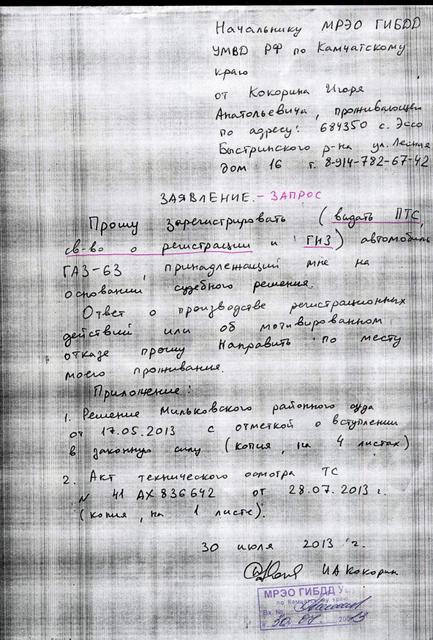 Начальнику МРЭО ГИБДД
УМВД РФ по Камчатскому
краю
от Кокорина Игоря
Анатольевича, проживающего
по адресу: 684350 с. Эссо
Быстринского р-на ул. Лесная
дом 16 т. 8-914-782-67-42
ЗАЯВЛЕНИЕ. - ЗАПРОС
Прошу зарегистрировать (выдать ПТС,
св-во о регистрации и ГНЗ) автомобиль
ГАЗ-63, принадлежащий мне на
основании судебного решения.
Ответ о производстве регистрационных
действий или об мотивированном
отказе прошу Направить по месту
моего проживания.
Приложение:
1. Решение Мильковского районного суда
от 17.05.2013 с отметкой о вступлении
в законную силу (копия, на 4 листах)
2. Акт технического осмотра ТС
N 41 АХ 836642 от 28.07.2013 г.
(копия, на 1 листе).
30 июля 2013 г.
ИА Кокорин
МРЭО ГИБДД У
по Камчатскому краю
Вх. №
30. 07 2013